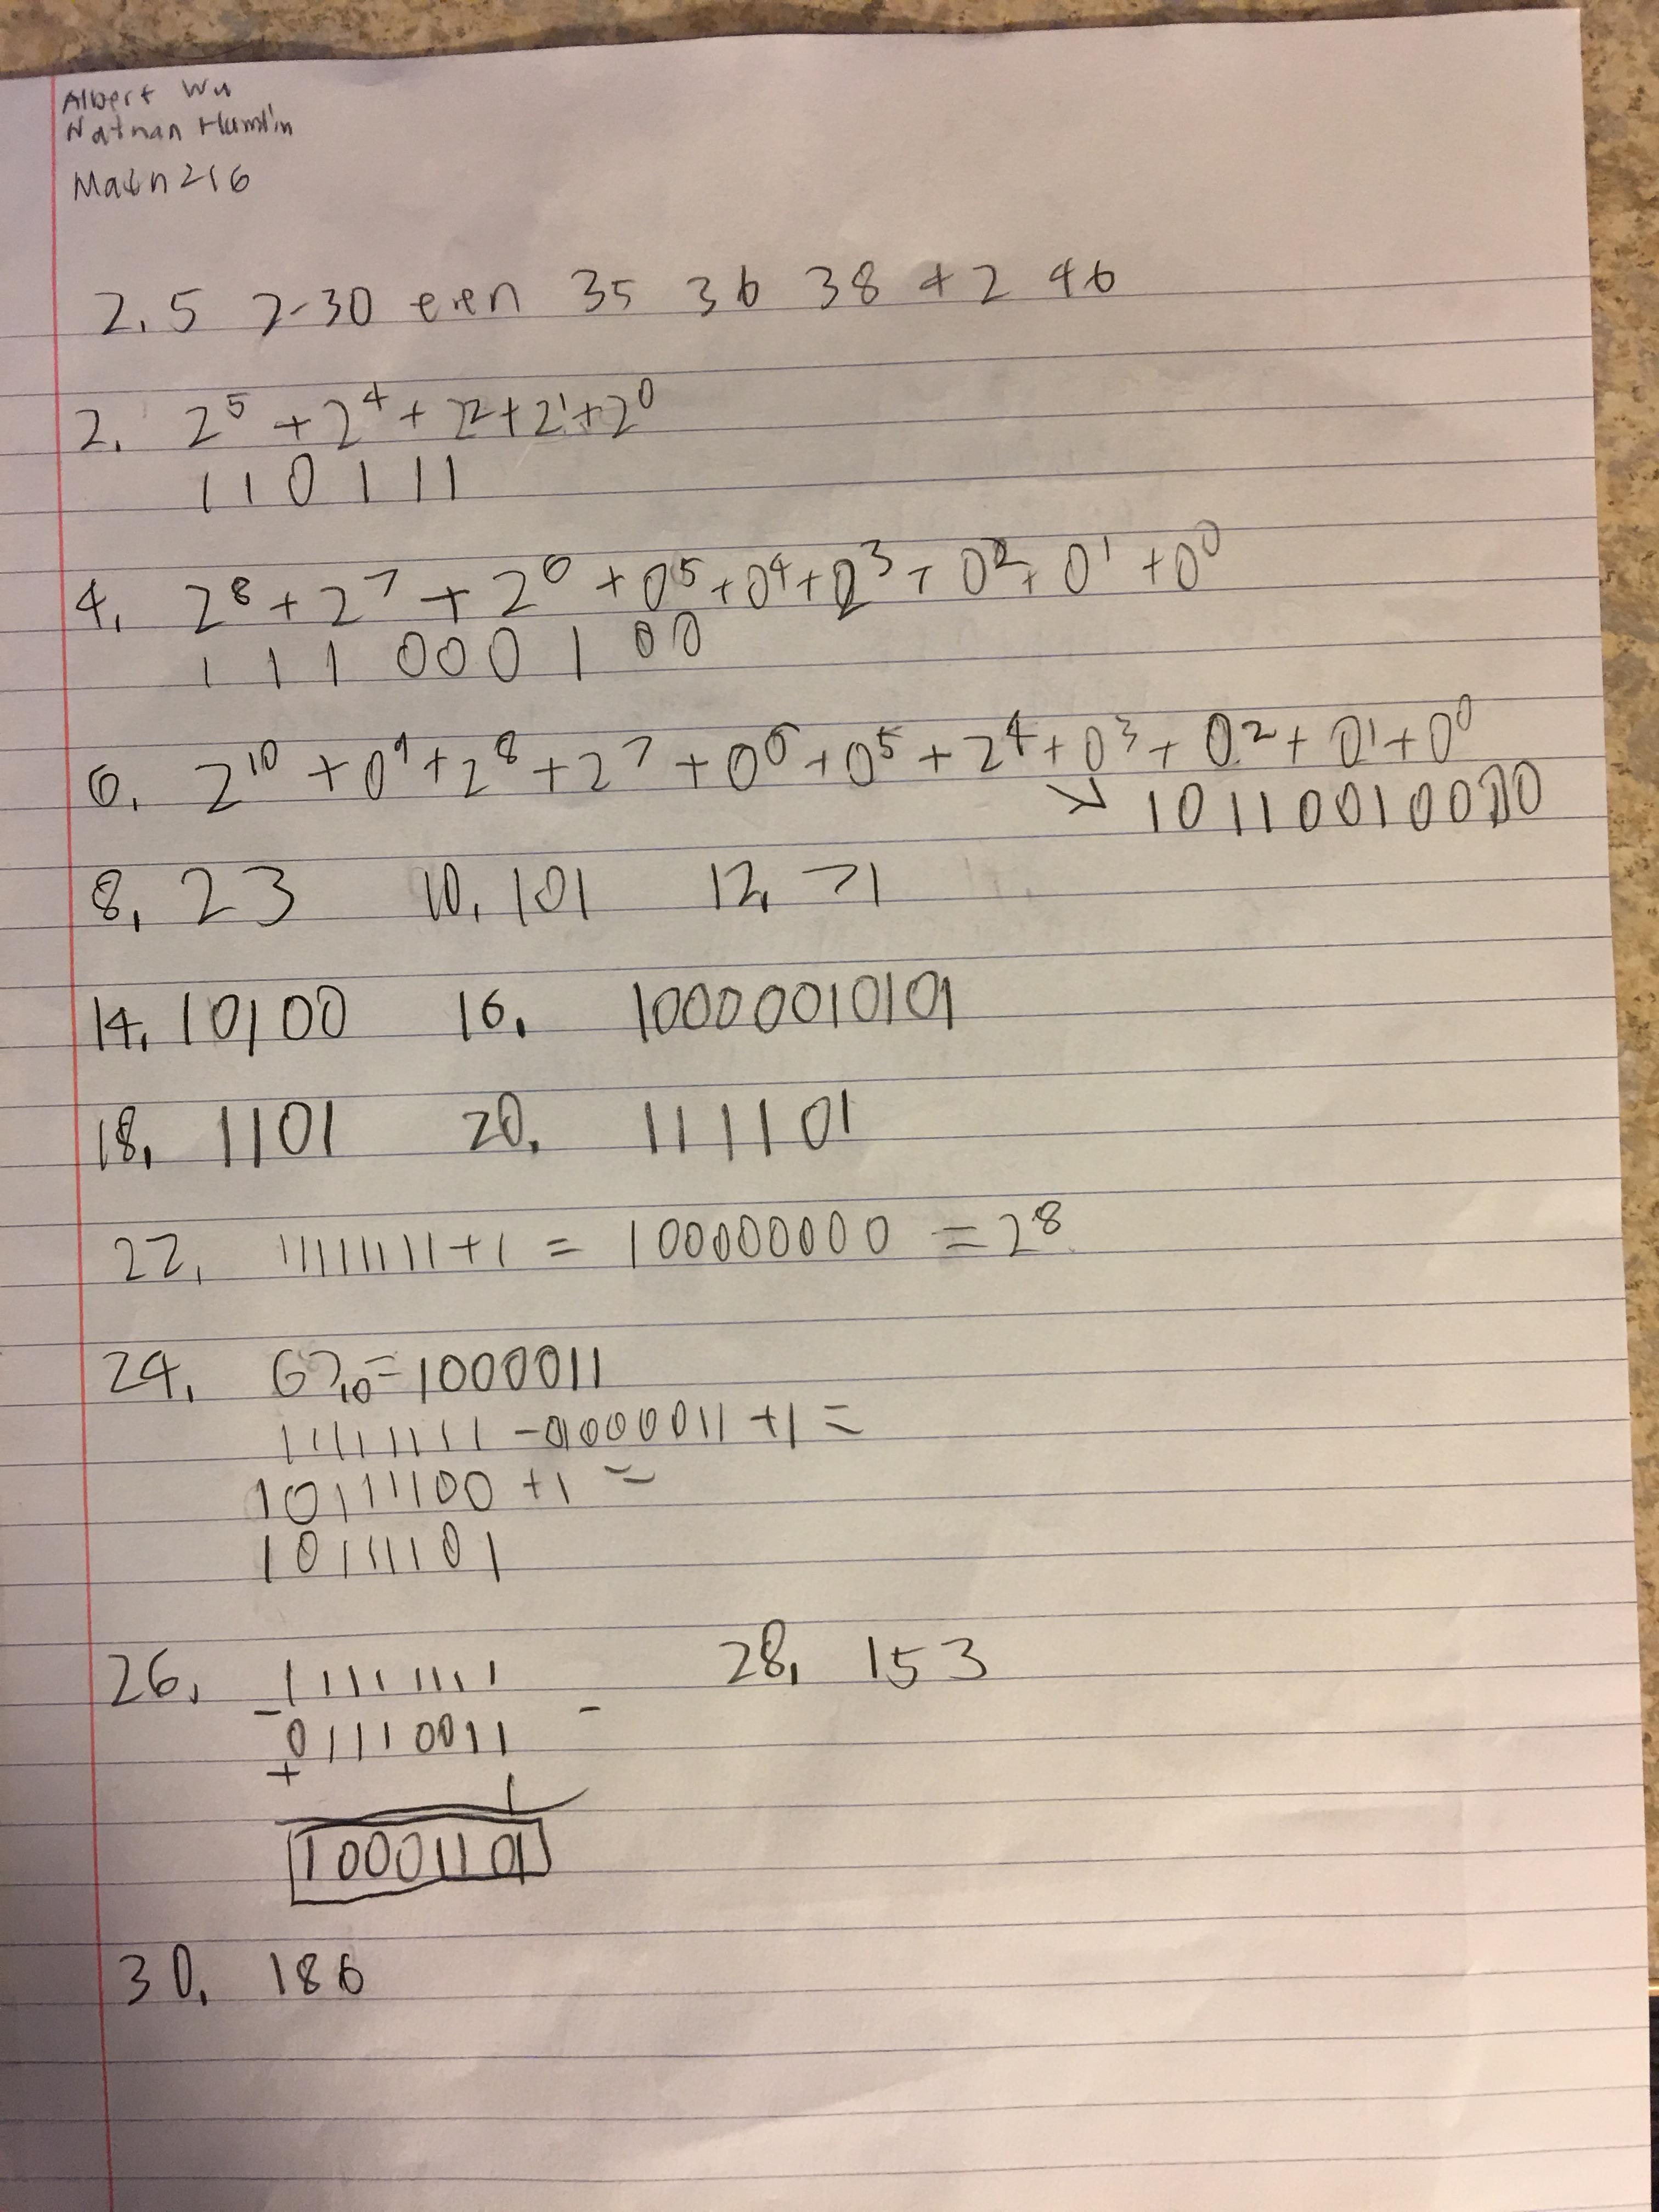 Albert Wu
Nathan Hamlin
Math 216
2.5 2-30 even 35 36 38 42 46
2. 2⁵ + 2⁴ + 2² + 2¹ + 2⁰
1 1 0 1 1 1
4. 2⁸ + 2⁷ + 2⁶ + 0⁵ + 0⁴ + 2³ + 0² + 0¹ + 0⁰
1 1 1 0 0 0 1 0 0
6. 2¹⁰ + 0⁹ + 2⁸ + 2⁷ + 0⁶ + 0⁵ + 2⁴ + 0³ + 0² + 0¹ + 0⁰
→ 10110010000
8. 23 10. 101 12. 71
14. 10100 16. 1000010101
18. 1101 20. 111101
22. 11111111 + 1 = 100000000 = 2⁸
24. 67₁₀ = 1000011
11111111 - 01000011 + 1 =
10111100 + 1 =
10111101
26. - 11111111 28. 153
01110011
+ 1
10001101
30. 186